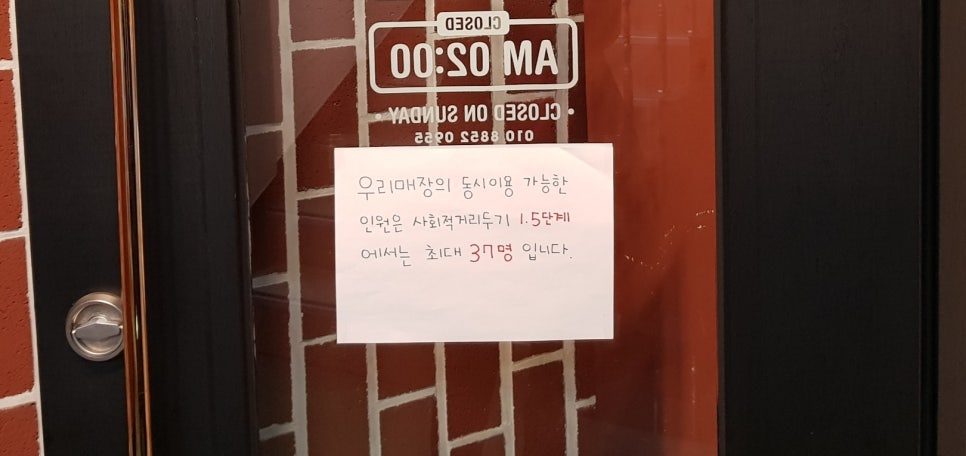 CLOSED
AM 02:00
• CLOSED ON SUNDAY •
010 8852 0955
우리매장의 동시이용 가능한
인원은 사회적거리두기 1.5단계
에서는 최대 37명 입니다.